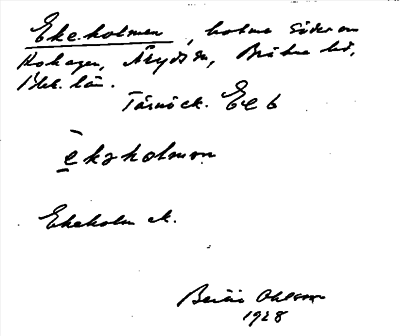 Ekeholmen, holme söder om
Kokagen, Åryds sn, Bräkne hd,
Blek. län.
Tärnö ek. Ec b
èkəholmən
Ekeholm ek.
Bertil Ohlsson
1928